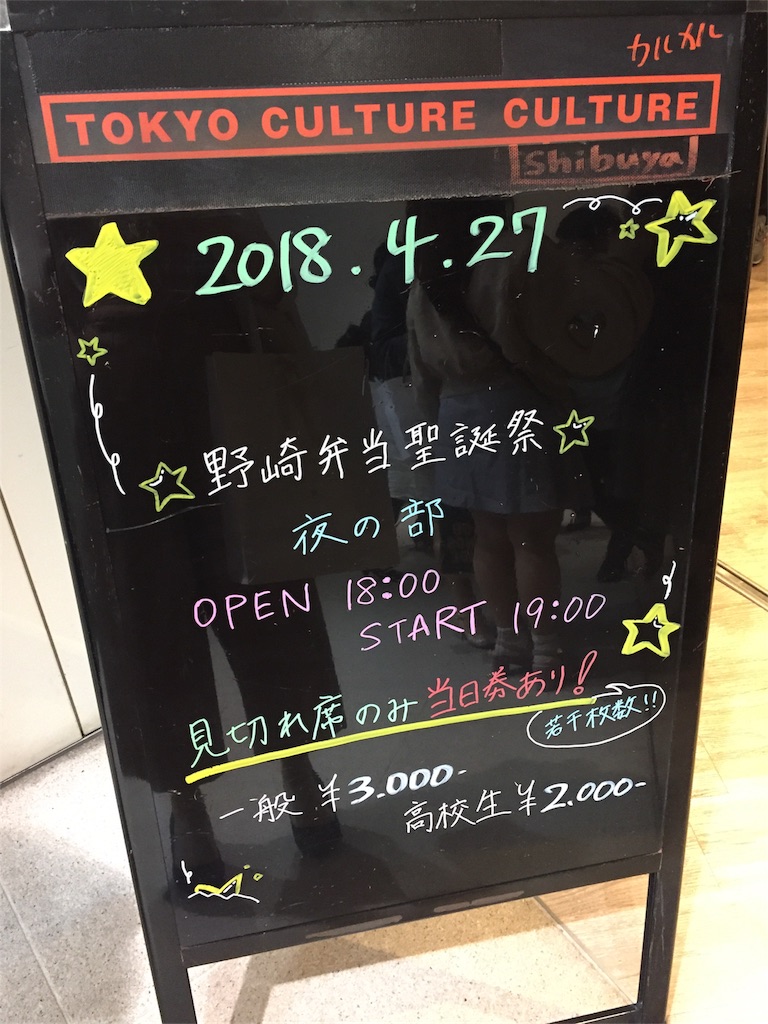 カルカル
TOKYO CULTURE CULTURE
Shibuya
2018.4.27
野崎弁当聖誕祭
夜の部
OPEN 18:00
START 19:00
見切れ席のみ当日券あり!
若干枚数!!
一般 ¥3.000-
高校生¥2.000-